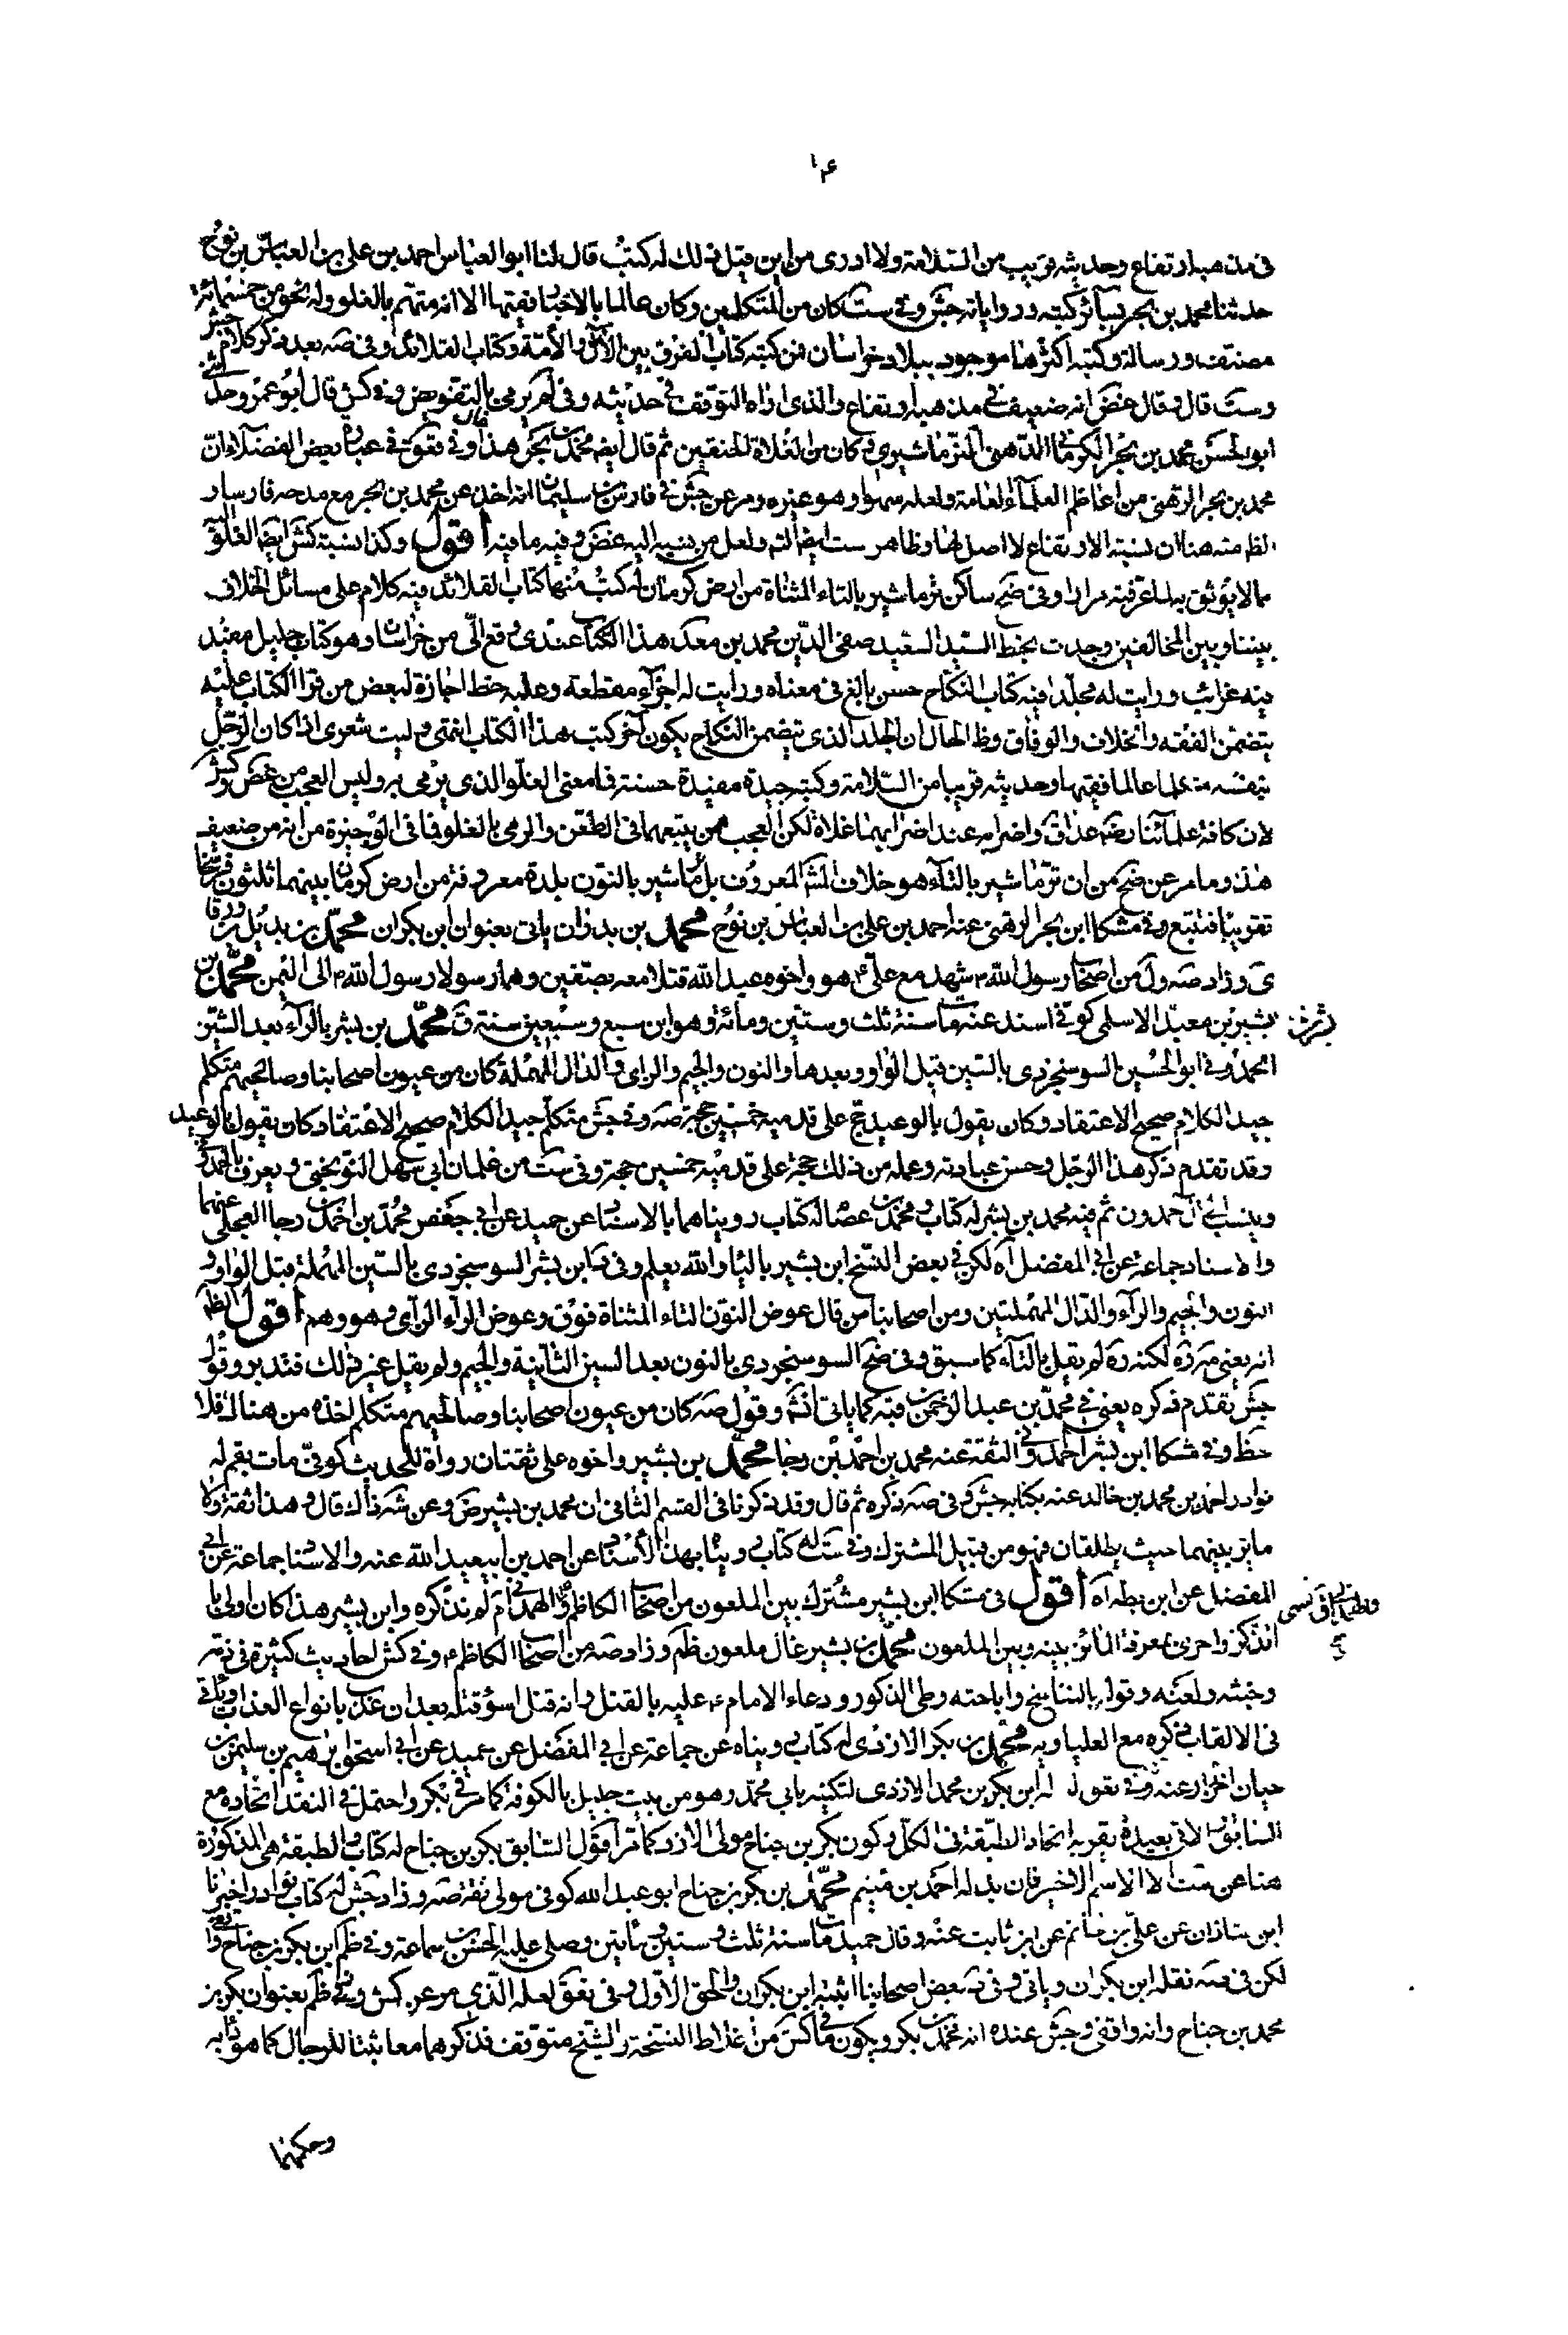 في مذهبه ارتفاع وحديثه قريب من السلامة ولا ادرى من اين قيل ذلك له كتب قال لنا ابو العباس احمد بن علي بن العباس بن نوح
حدثنا محمد بن بحر بسائر كتبه ورواياته جش وفي ست كان من المتكلمين وكان عالما بالاخبار فقيها الا انه متهم بالغلو وله نحو من خمسمائة
مصنف ورسالة وكتبه اكثرها موجود ببلاد خراسان فمن كتبه كتاب الفرق بين الآل والأمة وكتاب القلائد وفي صه بعد ذكر كلام جش
وست قال وقال غض انه ضعيف في مذهبه ارتفاع والذى اراه التوقف في حديثه وفي لم يرمى بالتفويض وفي كش قال ابو عمرو وحدثني
ابو الحسن محمد بن بحر الكرماني الدهني النرماشيري وكان من الغلاة الحنقين ثم قال ايضا محمد بن بحر هذا وفي تعق في عبارة بعض الفضلاء ان
محمد بن بحر الرهني من اعاظم العلماء العامة ولعله سهوا وهو غيره ومر عن جش في فارس بن سليمان انه اخذ عن محمد بن بحر مع مدحه فارسا و
الظ منه هنا ان نسبته الارتفاع لا اصل لها وظاهر ست ايضا ذلك ولعل من نسبه اليه غض وفيه ما فيه اقول وكذا نسبة كش ايضا الغلو
مما لا يوثق به لما عرفته مرارا وفي ضح ساكن ترماشير بالتاء المثناة من ارض كرمان له كتب منها كتاب القلائد فيه كلام على مسائل الخلاف
بيننا وبين المخالفين وجدت بخط السيد السعيد صفى الدين محمد بن معد هذا الكتاب عندى وقع الى من خراسان وهو كتاب جليل مفيد
فيه غرائب ورايت له مجلدا فيه كتاب النكاح حسن بالغ في معناه ورايت له اجزاء مقطعة وعليه خط اجازة لبعض من قرا الكتاب عليه
يتضمن الفقه والخلاف والوفاق وظ الحال ان المجلد الذى يتضمن النكاح يكون آخر كتب هذا الكتاب انتهى وليت شعرى اذا كان الرجل
بنفسه متكلما عالما فقيها وحديثه قريبا من السلامة وكتبه جيدة مفيدة حسنة فما معنى الغلو الذى يرمى به وليس العجب من غض وكش
لان كافة علمائنا رضه عداق واضرابه عند اضرابهما غلاة لكن العجب ممن يتبعهما في الطعن والرمى بالغلو فما في الوجيزة من انه من ضعيف
هذا وما مر عن ضح من ان ترماشير بالتاء هو خلاف المشهور المعروف بل نرماشير بالنون بلدة معروفة من ارض كرمان بينهما ثلثون فرسخا
تقريبا فتتبع وفي مشكا ابن بحر الرهني عنه احمد بن علي بن العباس بن نوح محمد بن بدران ياتي بعنوان ابن بكران محمد بن بديل بن ورقا
ى وزاد صه ول من اصحاب رسول الله ص شهد مع على ع هو واخوه عبد الله قتلا معه بصفين وهما رسولا رسول الله ص الى اليمن محمد بن
بشير بن معبد الاسلمى كوفي اسند عنه مات سنة ثلث وستين ومائة وهو ابن سبع وسبعين سنة ق محمد بن بشر بالراء بعد الشين
الحمدوني ابو الحسين السوسنجزدى بالسين قبل الواو وبعدها والنون والجيم والزاى والدال المهملة كان من عيون اصحابنا وصالحيهم متكلم
جيد الكلام صحيح الاعتقاد وكان يقول بالوعيد حج على قدميه خمسين حجة صه وفي جش متكلم جيد الكلام صحيح الاعتقاد كان يقول بالوعيد
وقد تقدم ذكر هذا الرجل وحسن عبادته وعمله من ذلك حجة على قدميه خمسين حجة وفي ست من غلمان ابي سهل النوبختي ويعرف بالحمدوني
وينسب الى آل حمدون ثم فيه محمد بن بشر له كتاب ومحمد بن عصام له كتاب رويناهما بالاسناد عن حميد عن ابي جعفر محمد بن احمد بن رجا البجلى عنهما
والاسناد جماعة عن ابي المفضل اه لكن في بعض النسخ ابن بشير بالياء والله يعلم وفي د ابن بشر السوسنجردى بالسين المهملة قبل الواو و
النون والجيم والراء والدال المهملتين ومن اصحابنا من قال عوض النون التاء المثناة فوق وعوض الراء الزاى وهو وهم اقول الظ
انه يعنى به ره لكنه ره لم يقل بالتاء كما سبق وفي ضح السوسنجردى بالنون بعد السين الثانية والجيم ولم يقيل غير ذلك فتدبر وقول
جش تقدم ذكره يعنى في محمد بن عبد الرحمن بن قبه كما ياتي انشم وقول صه كان من عيون اصحابنا وصالحيهم متكلم اخذه من هناك فلا
حظ وفي مشكا ابن بشر الحمدوني الثقة عنه محمد بن احمد بن رجا محمد بن بشير واخوه على ثقتان رواة للحديث كوفي مات بقم له
نوادر احمد بن محمد بن خالد عنه بكتابه جش وفي صه ذكره ثم قال وقد ذكرنا في القسم الثاني ان محمد بن بشير ض وعن شه ذاك قال وهذا ثقة ولا
مائز بينهما حيث يطلقان فهو من قبيل المشترك وفي ست له كتاب رويناه بهذا الأسناد عن احمد بن ابيعبد الله عنه والاسناد جماعة عن ابي
المفضل عن ابن بطه اه اقول في مشكا ابن بشير مشترك بين الملعون من اصحاب الكاظم ع والهمداني لم نذكره وابن بشير هذا كان اولى با
لذكر واحرى بمعرفة المائز بينه وبين الملعون محمد بن بشير غال ملعون ظم وزاد صه من اصحاب الكاظم ع وفي كش احاديث كثيرة في ذمه
وخبثه ولعنه وقوله بالتناسخ واباحته وطى الذكور ودعاء الامام ع عليه بالقتل وانه قتل اسوء قتلة بعد ان عذب بانواع العذاب وياتي
في الالقاب ذكره مع العلياوية محمد بن بكر الازدى له كتاب رويناه عن جماعة عن ابي المفضل عن حميد عن ابي اسحق ابرهيم بن سليمن بن
حيان الخزاز عنه وفي تعق له ابن بكر بن محمد الازدى لتكنيه بابي محمد وهو من بيت جليل بالكوفة كما مر في بكر واحتمل في النقد اتحاده مع
السابق الاتي بعيده بقرينة اتحاد الطبقة في الكل وكون بكر بن جناح مولى الازد كما مر اقول السابق بكر بن جناح له كتاب والطبقة هي المذكورة
هنا عن ست الا الاسم الاخير فان بدله احمد بن ميثم محمد بن بكر بن جناح ابو عبد الله كوفي مولى ثقة صه وزاد جش له كتاب نوادر اخبرنا
ابن شاذان عن علي بن حاتم عن ابن ثابت عنه وقال حميد مات سنة ثلث وستين ومأتين وصلى عليه الحسن بن سماعة وفي ظم ابن بكر بن جناح واقفى
لكن في صه نقله ابن بكران وياتي وفي د بعض اصحابنا اثبته ابن بكران والحق الاول وفي تعق لعله الذى مر عن كش وفي ظم بعنوان بكر بن
محمد بن جناح وانه واقفي وجش عنده انه محمد بن بكر ويكون ما في كش من اغلاط النسخة والشيخ متوقف فذكرهما معا تثبتا للرجال كما هو دابه
وحكمهما